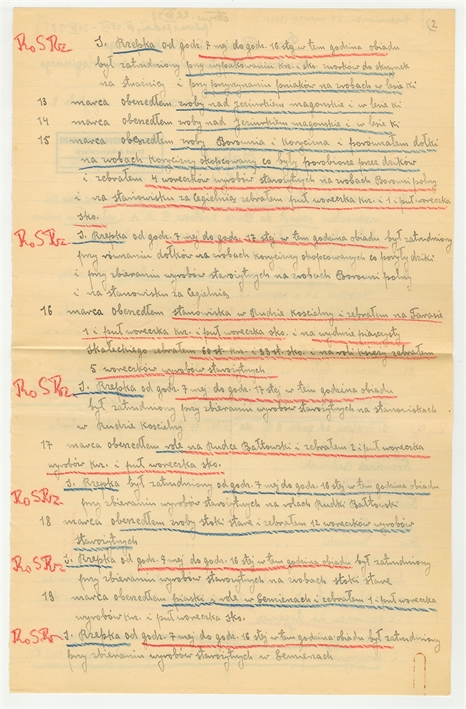 (2
RoSRz J. Rzepka od godz. 7 mej do godz. 16 stej w tem godzina obiadu
był zatrudniony przy wypakowaniu krz. i sko. worków do skrzynek
na strażnicy i przy na zrobach w lesie ki
13 marca obszedłem zroby nad Jeziurkiem magonskie i w lesie ki
14 marca obszedłem zroby nad Jeziurkiem magonskie i w lesie ki
15 marca obszedłem zroby Borownia i Korycizna i porównałem dołki
na zrobach Korycizny okopcowanej co były porobione przez dzików
i zebrałem 4 woreczków wyrobów starożytnych na zrobach Borowni polny
i na stanowisku za Cegielnią zebrałem puł woreczka krz. i 1 i puł woreczka
sko.
RoSRz. J. Rzepka od godz. 7 mej do godz. 17 stej w tem godzina obiadu był zatrudniony
przy równaniu dołków na zrobach korycizny okopcowanych co poryły dziki
i przy zbieraniu wyrobów starożytnych na zrobach Borowni polny
i na stanowisku za Cegielnią
16 marca obszedłem stanowiska w Rudzie Kościelny i zebrałem na Farasie
1 i puł woreczka krz. i puł woreczka sko. i na wydmie piaszczysty
Skałeckiego zebrałem 60 st. krz. i 33 st. sko. i na roli Księży zebrałem
5 woreczków wyrobów starożytnych
RoSRz J. Rzepka od godz. 7 mej do godz. 17 stej w tem godzina obiadu
był zatrudniony przy zbieraniu wyrobów starożytnych na stanowiskach
w Rudzie Kościelny
17 marca obszedłem role na Rudce Bałtowski i zebrałem 2 i puł woreczka
wyrobów krz. i puł woreczka sko.
RoSRz. J. Rzepka był zatrudniony od godz. 7 mej do godz. 16 stej w tem godzina obiadu
przy zbieraniu wyrobów starożytnych na rolach Rudki Bałtowski
18 marca obszedłem zroby stoki stare i zebrałem 12 woreczków wyrobów
starożytnych
RoSRz J. Rzepka od godz. 7 mej do godz. 16 stej w tem godzina obiadu był zatrudniony
przy zbieraniu wyrobów starożytnych na zrobach stoki stare
19 marca obszedłem piaski i role w Semienach i zebrałem 1 i puł woreczka
wyrobów krz. i puł woreczka sko.
RoSRz J. Rzepka od godz. 7 mej do godz. 16 stej w tem godzina obiadu był zatrudniony
przy zbieraniu wyrobów starożytnych w Semienach